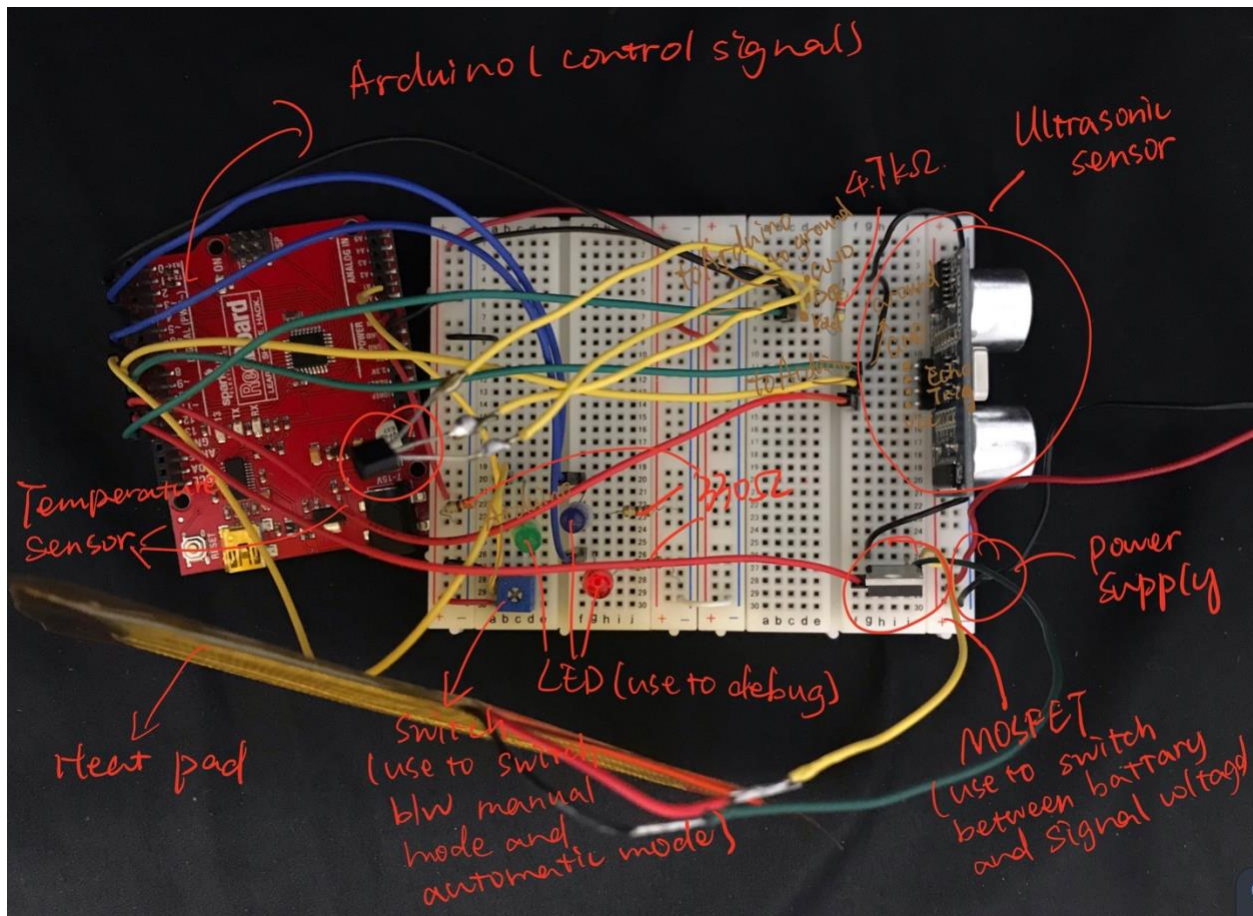 Arduino (control signals)
Ultrasonic
sensor
4.7kΩ
to Arduino
to ground
GND
DQ
ground
to Ardui
Echo
Trig
ANALOG IN
POWER
ON
RESET
7-15V
330Ω
Temperature
sensor
power
supply
LED (use to debug)
Heat pad
Switch
(use to switch
b/w manual
mode and
automatic mode)
MOSFET
(use to switch
between battary
and signal voltage)
+ - a b c d e f g h i j + - + - a b c d e f g h i j +